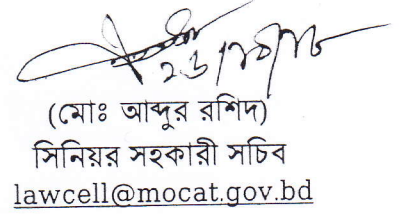 (মোঃ আব্দুর রশিদ)
সিনিয়র সহকারী সচিব
lawcell@mocat.gov.bd